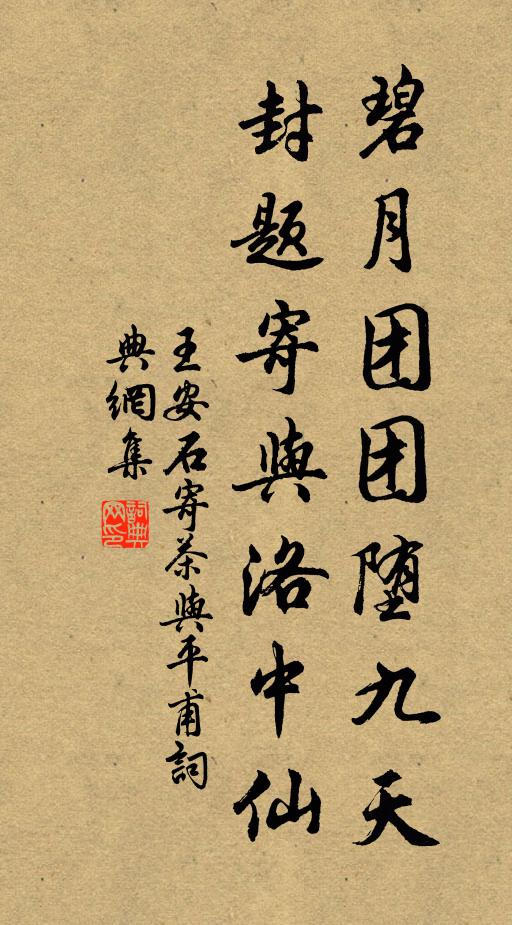 碧月团团堕九天
封题寄與洛中仙
王安石寄茶與平甫詞
典網集
詞典網印